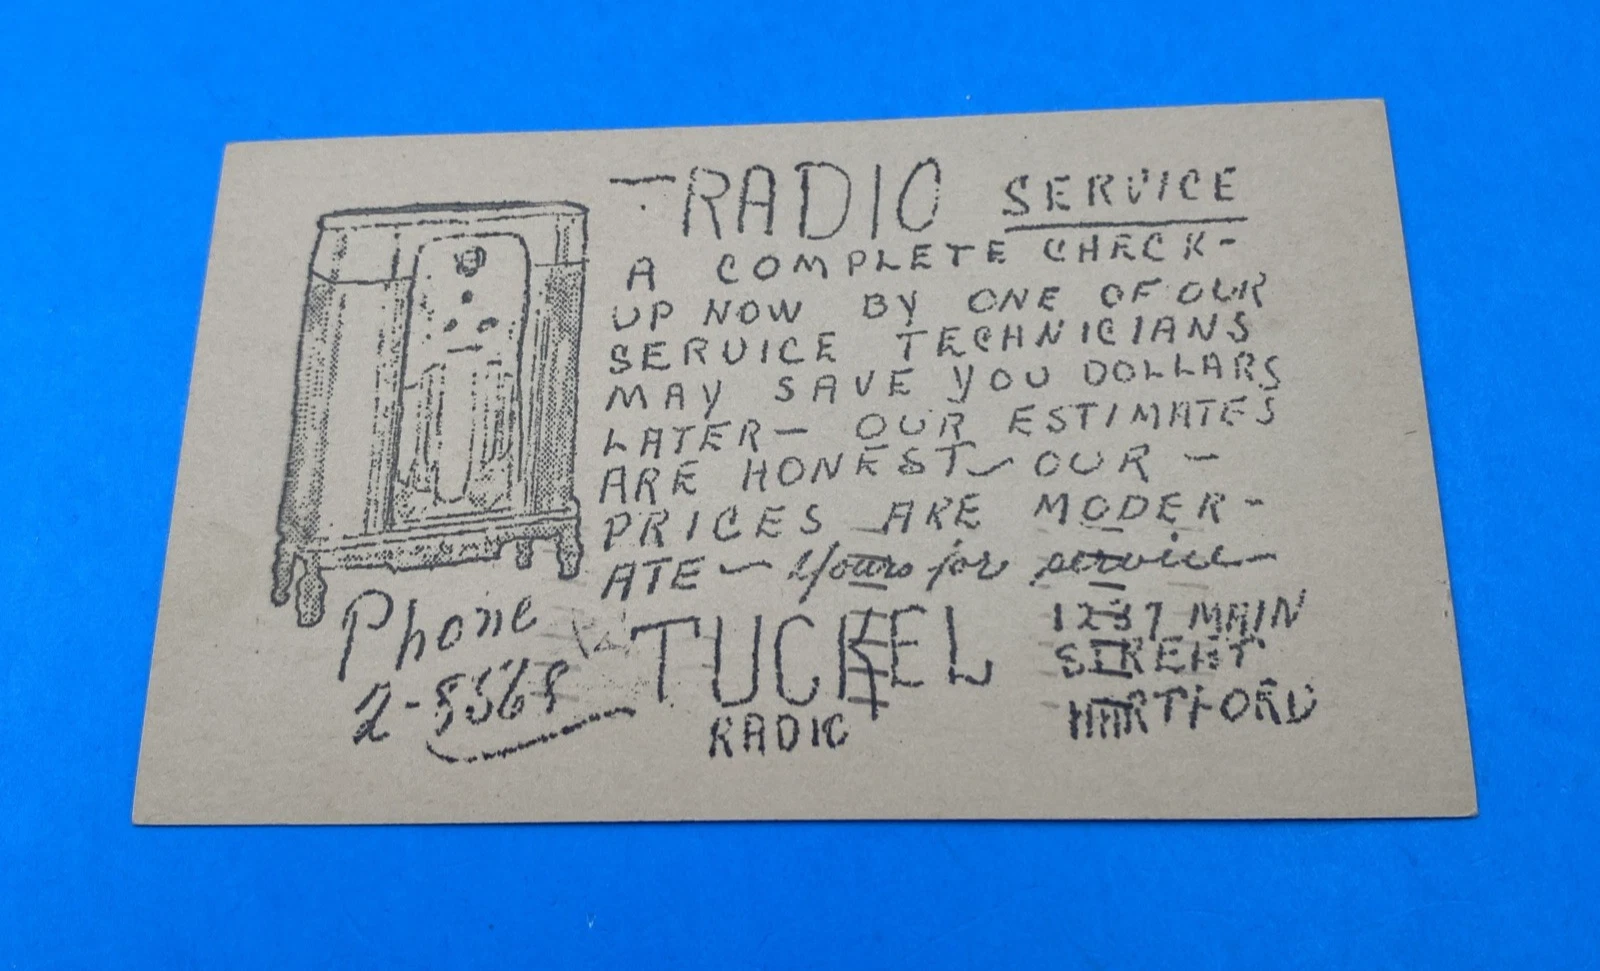 — RADIO SERVICE
A COMPLETE CHECK-
UP NOW BY ONE OF OUR
SERVICE TECHNICIANS
MAY SAVE YOU DOLLARS
LATER — OUR ESTIMATES
ARE HONEST — OUR —
PRICES ARE MODER-
ATE — Yours for service —
Phone
TUCKEL
RADIO
MAIN
STREET
HARTFORD